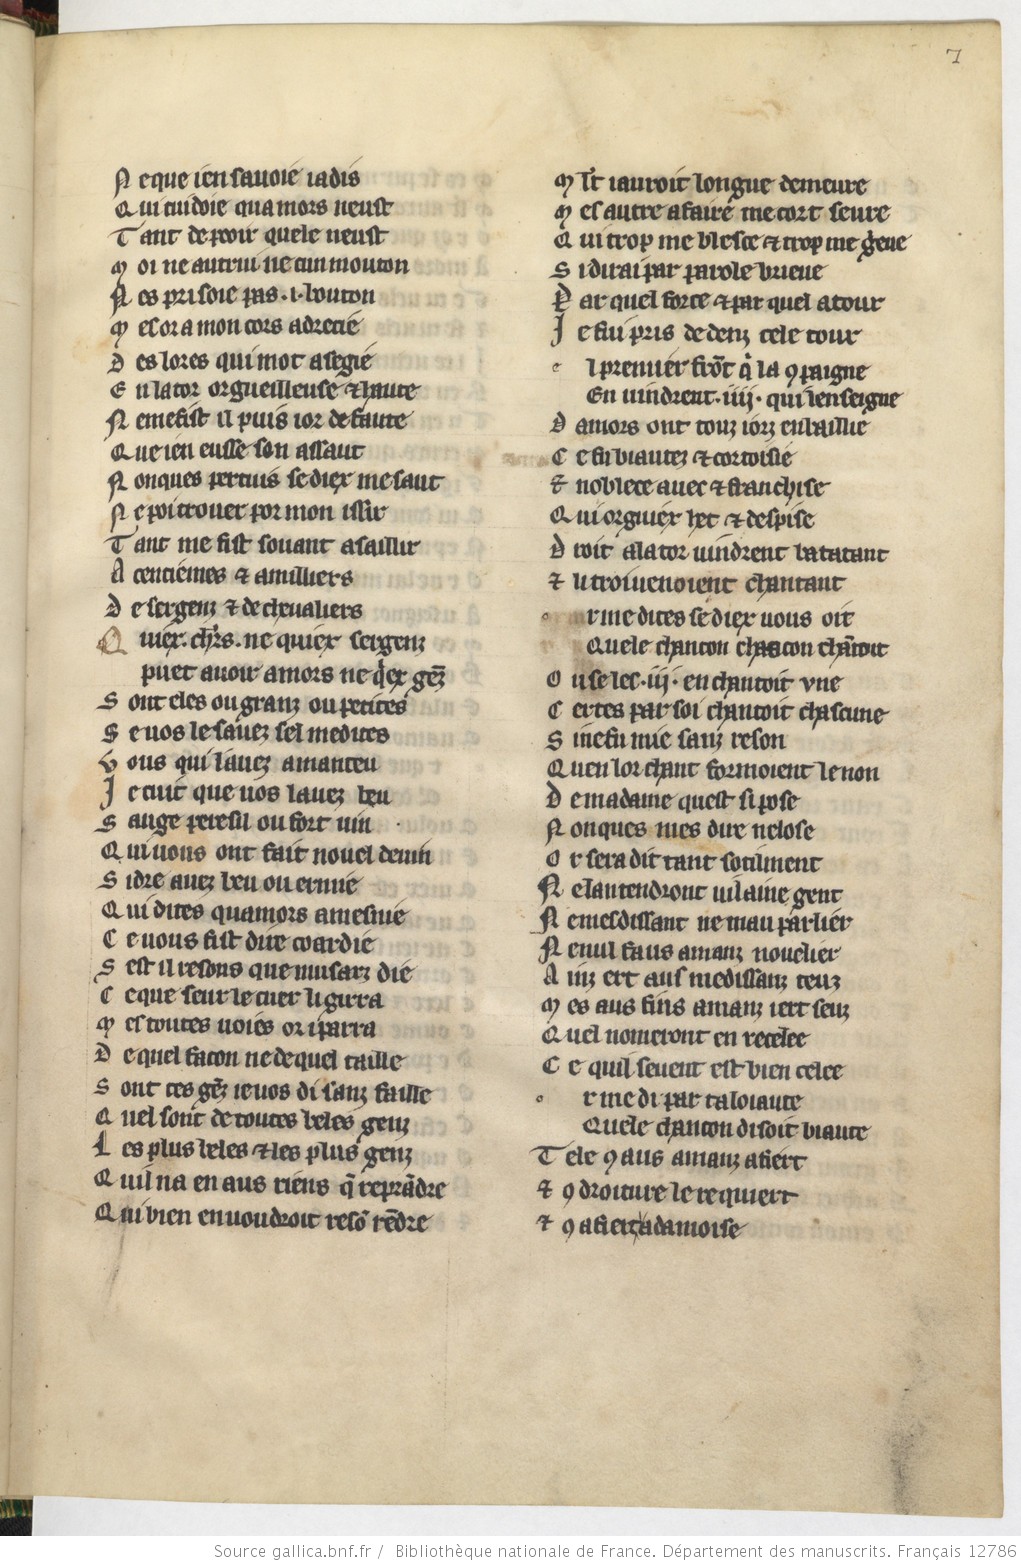 7
Ne que ien sauoie iadis
Qui cuidoie quamors neust
Tant de pooir quele neust
Moi ne autrui ne cun mouton
Nes prisoie pas .i. bouton
Mes or a mon cors adrecie
Des lores qui mot asegie
En la tor orgueilleuse & haute
Ne me fist il puis ior de faute
Que ien eusse son assaut
Nonques pertuis se diex me saut
Ne poi trouer por mon issir
Tant me fist souant asaillir
A centiemes & a milliers
De sergenz & de cheualiers
Quiex. chrs. ne quiex sergenz
puet auoir amors ne qiex gēz
Sont eles ou granz ou petites
Se uos le sauez sel me dites
Vous qui lauez amanteu
Je cuit que uos lauez beu
Sauge peresil ou fort uin
Qui uous ont fait nouel deuin
Sidre auez beu ou ermie
Qui dites quamors a mesnie
Ce uous fist dire coardie
Sest il resons que musarz die
Ce que seur le cuer li girra
Mes toutes uoies or i parra
De quel facon ne de quel taille
Sont ces gēz ie uos di sanz faille
Quel sont de toutes beles genz
Les plus beles & les plus genz
Quil na en aus riens q̄ reprādre
Qui bien en uoudroit resō rēdre
Mlt i auroit longue demeure
Mes autre afaire me cort seure
Qui trop me blesce & trop me greue
Si dirai par parole brieue
Par quel force & par quel atour
Je fui pris dedenz cele tour
l premier frōt q̄ la 9paigne
En uindrent .iiij. qui lenseigne
Damors ont touz iorz en baillie
Ce fu biautez & cortoisie
& noblece auec & franchise
Qui orguiex het & despise
Droit a la tor uindrent batatant
& li troi uenoient chantant
r me dites se diex uous oit
Quele chancon chascon chātoit
Ou se les .iij. en chantoit vne
Certes par soi chantoit chascune
Si ne fu mie sanz reson
Quen lor chant formoient le non
De ma dame quest si pose
Nonques mes dire ne lose
Or sera dit tant sotilment
Ne lantendront uilaine gent
Ne mesdissant ne mau parlier
Ne nul faus amanz nouelier
A niz ert aus medissanz teuz
Mes aus fins amanz iert seuz
Quel nomeront en recelee
Ce quil seuent est bien celee
r me di par ta loiaute
Quele chancon disoit biaute
Tele 9 aus amanz afiert
& 9 droiture le requiert
& 9 afiert a damoise
Source gallica.bnf.fr / Bibliothèque nationale de France. Département des manuscrits. Français 12786